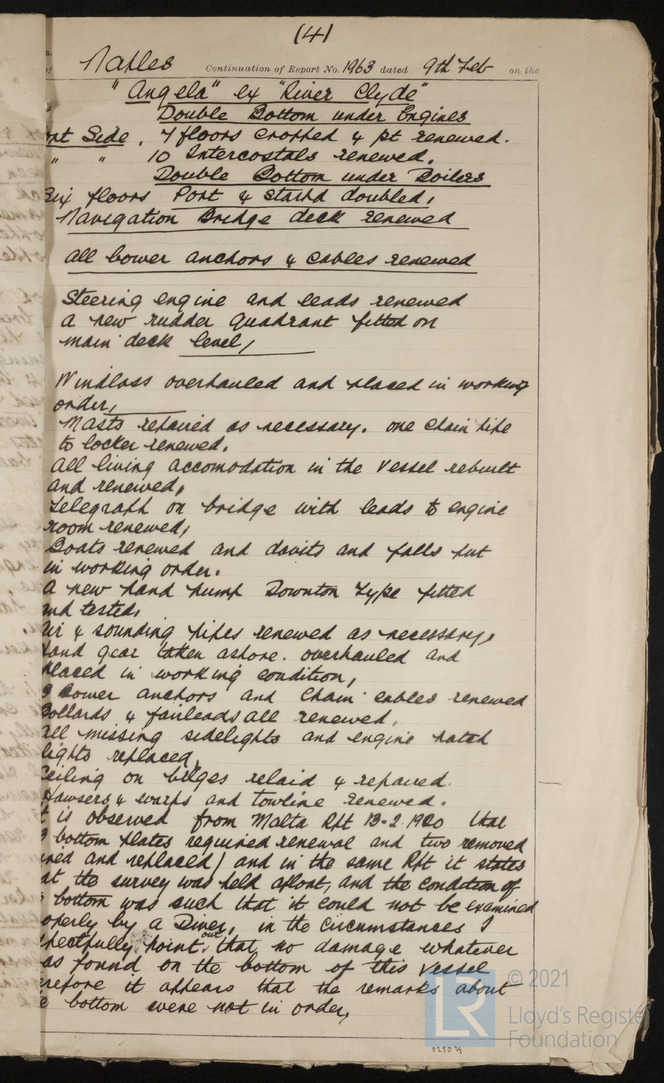 (4)
Naples Continuation of Report No. 1963 dated 9th Feb on the
"Angela" ex "River Clyde"
Double Bottom under Engines
Side. 7 floors cropped & pt renewed.
" " 10 Intercostals renewed.
Double Bottom under Boilers
Six floors Port & Starbd doubled,
Navigation Bridge deck renewed
All bower anchors & cables renewed
Steering engine and leads renewed
a new rudder quadrant fitted on
main deck level,
Windlass overhauled and placed in working
order,
Masts repaired as necessary. one chain pipe
to locker renewed.
All living accomodation in the vessel rebuilt
and renewed,
Telegraph on bridge with leads to engine
room renewed,
Boats renewed and davits and falls put
in working order.
A new hand pump Downton Type fitted
and tested,
Air & sounding pipes renewed as necessary,
Hand gear taken ashore. overhauled and
placed in working condition,
3 bower anchors and chain cables renewed
Bollards & fairleads all renewed,
All missing sidelights and engine hatch
lights replaced,
Ceiling on bilges relaid & repaired.
Hawsers & warps and towline renewed.
it is observed from Malta Rpt 13-2.1920 that
bottom plates required renewal and two removed
and replaced) and in the same Rpt it states
at the survey was held afloat, and the condition of
bottom was such that it could not be examined
operly by a Diver, in the circumstances I
pectfully point out that no damage whatever
as found on the bottom of this vessel
erefore it appears that the remarks about
e bottom were not in order,
© 2021
LR
Lloyd's Register
Foundation
0250 2/3